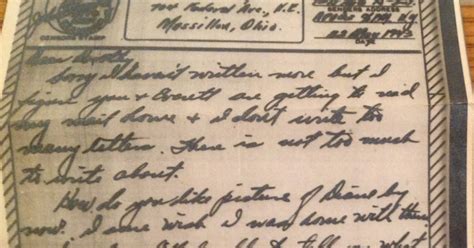 Federal Ave., N.E.
Massillon, Ohio.
CENSOR'S STAMP
SENDER'S ADDRESS
DATE
Sorry I haven't written more but I
figure you & Everett are getting to read
my mail home & I don't write too
many letters. There is not too much
to write about.
How do you like picture of Diane by
now. I sure wish I was home with them